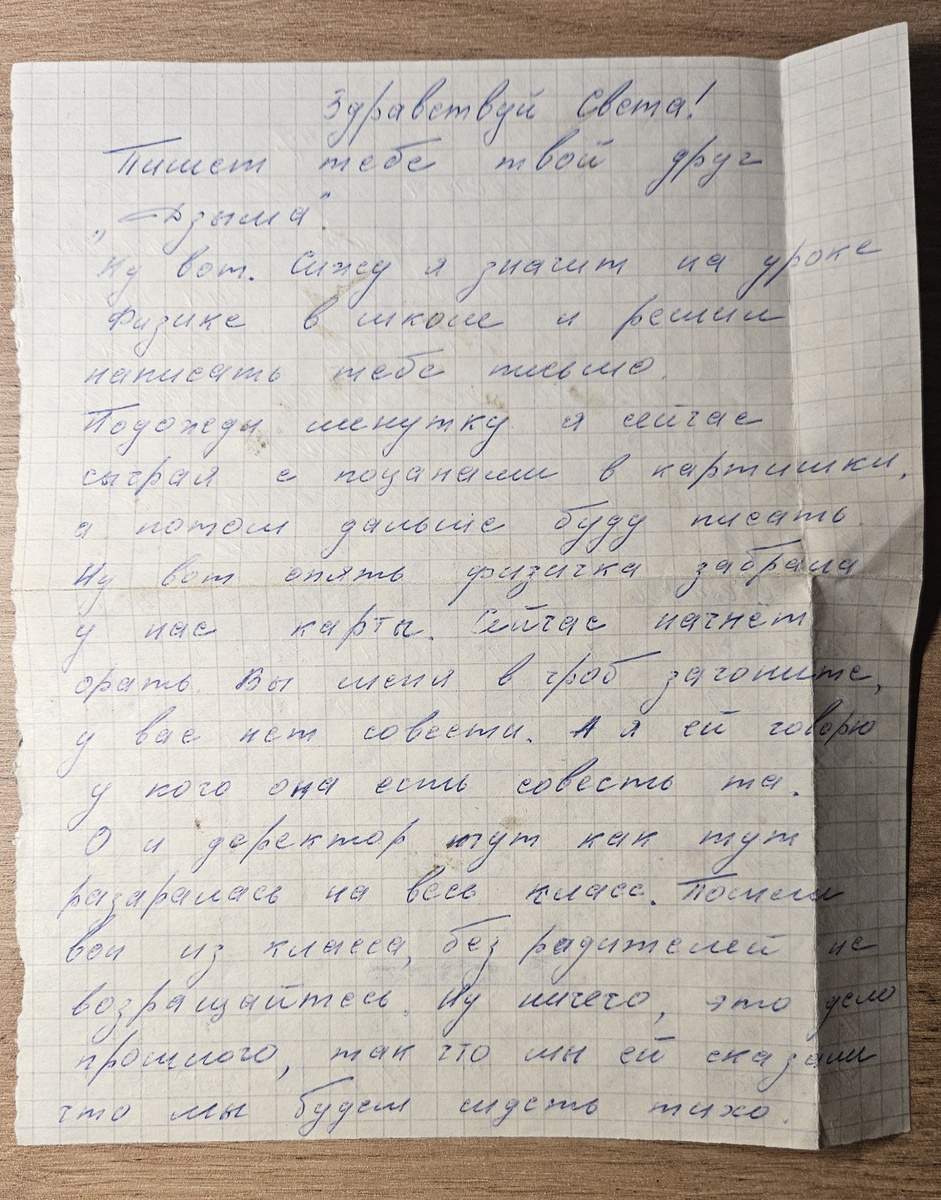 Здравствуй Света!
Пишет тебе твой друг
„Дзыма".
Ну вот. Сижу я значит на уроке
Физике в школе и решил
написать тебе письмо.
Подожди минутку я сейчас
сыграя с поцанами в картишки,
а потом дальше буду писать.
Ну вот опять физичка забрала
у нас карты. Сейчас начнёт
орать. Вы меня в гроб загоните,
у вас нет совести. А я ей говорю
у кого она есть совесть та.
О и деректор тут как тут
разаралась на весь класс. Пошли
вон из класса, без радителей не
возращайтесь. Ну ничего, это дело
прошлого, так что мы ей сказали
что мы будем сидеть тихо.